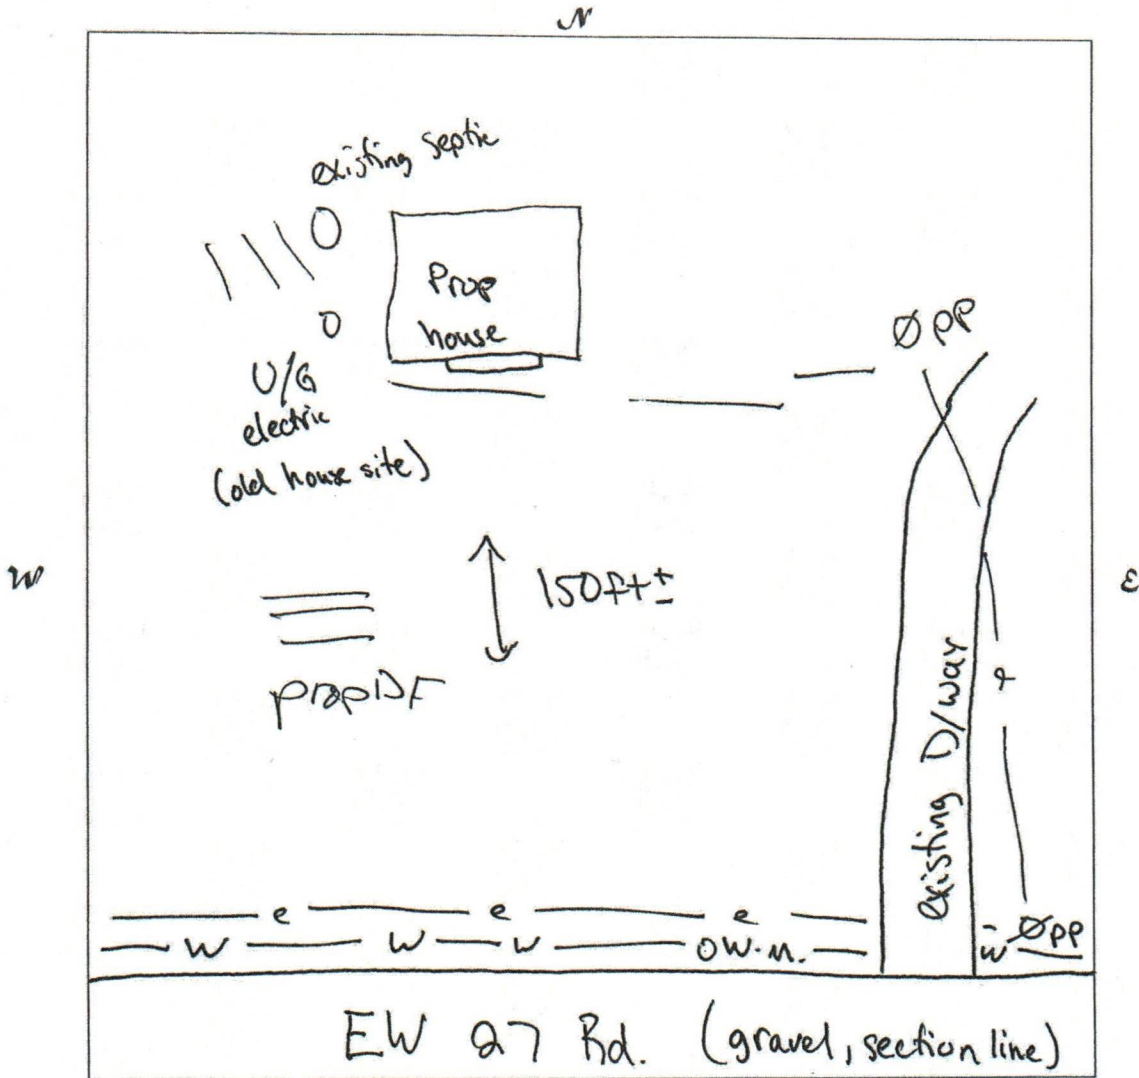 N
existing septic
Prop
house
Ø PP
U/G
electric
(old house site)
W
150ft±
E
prop DF
existing D/way
e
e e e
W W W O W.M. W Ø PP
EW 27 Rd. (gravel, section line)